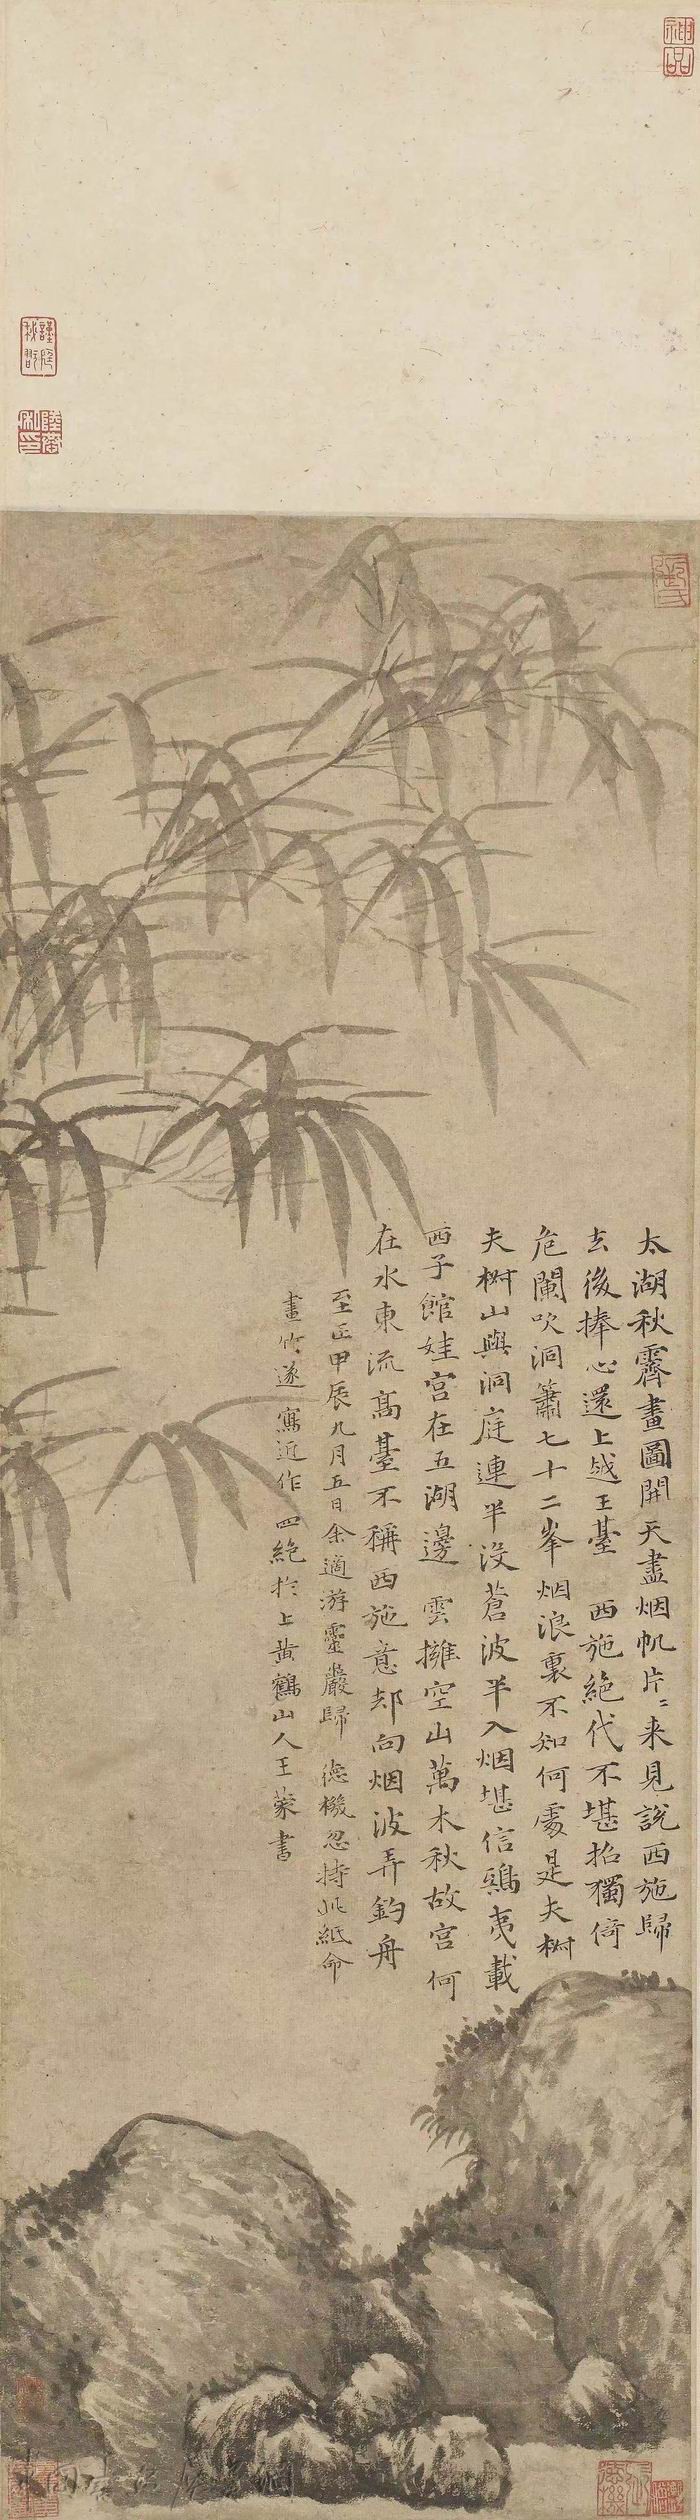 太湖秋霽畫圖開天盡烟帆片〻来見說西施歸
去後捧心還上越王臺 西施絕代不堪招獨倚
危闌吹洞簫七十二峯烟浪裏不知何處是夫椒
夫椒山與洞庭連半没蒼波半入烟堪信鴟夷載
西子館娃宮在五湖邊 雲擁空山萬木秋故宮何
在水東流髙臺不稱西施意却向烟波弄釣舟
至正甲辰九月五日余適游靈巖歸 德機忽持此紙命
畫竹遂寫近作四絕扵上黄鶴山人王蒙書
神品